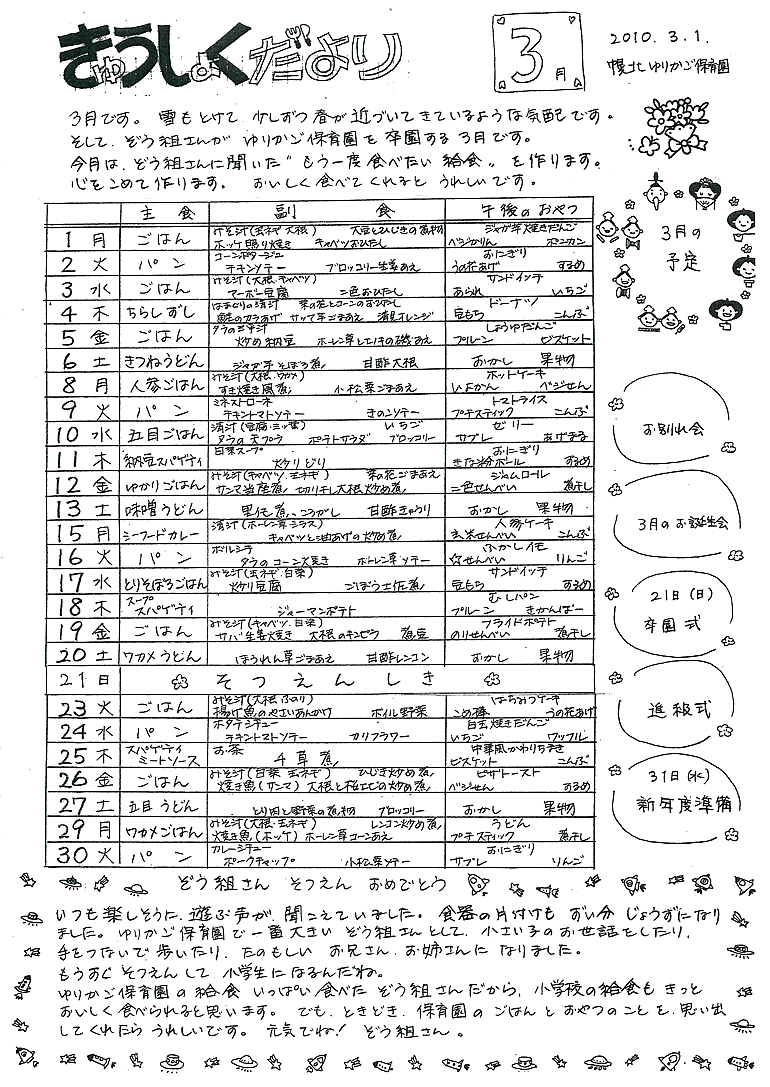 きゅうしょくだより
3月
2010.3.1.
幌北ゆりかご保育園
3月です。 雪もとけて 少しずつ春が近づいてきているような気配です。
そして、ぞう組さんが ゆりかご保育園を卒園する3月です。
今月は、ぞう組さんに聞いた“もう一度食べたい給食„を作ります。
心をこめて作ります。 おいしく食べてくれると うれしいです。
主食 副食 午後のおやつ
1 月 ごはん みそ汁(玉ネギ 大根) 大豆とひじきの煮物 ホッケ照り焼き キャベツおひたし ジャガ芋焼きだんご ベジかりん ポンカン
2 火 パン コーンポタージュ チキンソテー ブロッコリー生姜あえ おにぎり うの花あげ するめ
3 水 ごはん みそ汁(大根、キャベツ) マーボー豆腐 二色おひたし サンドイッチ あられ いちご
4 木 ちらしずし はまぐりの清汁 菜の花とコーンのおひたし 鮭のカラあげ サツマ芋ごまあえ 清見オレンジ ドーナツ 豆もち こんぶ
5 金 ごはん タラの三平汁 炒め納豆 ホーレン草とエノキの磯あえ しょうゆだんご プルーン ビスケット
6 土 きつねうどん ジャガ芋そぼろ煮 甘酢大根 おかし 果物
8 月 人参ごはん みそ汁(大根、ワカメ) すき焼き風煮 小松菜ごまあえ ホットケーキ いよかん ベジせん
9 火 パン ミネストローネ チキントマトソテー きのこソテー トマトライス プチスティック こんぶ
10 水 五目ごはん 清汁(豆腐・三ッ葉) いちご タラの天プラ ポテトサラダ ブロッコリー ゼリー サブレ あげまる
11 木 納豆スパゲティ 白菜スープ 炒りどり おにぎり きな粉ボール するめ
12 金 ゆかりごはん みそ汁(キャベツ、玉ネギ) 菜の花ごまあえ サンマ当座煮 切り干し大根炒め煮 ジャムロール 二色せんべい 煮干し
13 土 味噌うどん 里芋煮っころがし 甘酢きゅうり おかし 果物
15 月 シーフードカレー 清汁(ホーレン草、シラス) キャベツと油あげの炒め煮 人参ケーキ 玄米せんべい こんぶ
16 火 パン ボルシチ タラのコーン焼き ホーレン草ソテー ふかし芋 ☆せんべい りんご
17 水 とりそぼろごはん みそ汁(玉ネギ、白菜) 炒り豆腐 ごぼう土佐煮 サンドイッチ 豆もち するめ
18 木 スープスパゲティ ジャーマンポテト むしパン プルーン きかんぼー
19 金 ごはん みそ汁(キャベツ、白菜) サバ生姜焼き 大根のキンピラ 煮豆 フライドポテト のりせんべい 煮干し
20 土 ワカメうどん ほうれん草ごまあえ 甘酢レンコン おかし 果物
21 日 そつえんしき
23 火 ごはん みそ汁(大根、ふのり) 揚げ魚のやさいあんかけ ボイル野菜 はちみつケーキ こめ棒 うの花あげ
24 水 パン ホタテシチュー チキントマトソテー カリフラワー 白玉焼きだんご いちご ワッフル
25 木 スパゲティミートソース お茶 千草煮 中華風かわりちまき ビスケット こんぶ
26 金 ごはん みそ汁(白菜 玉ネギ) ひじき炒め煮 焼き魚(サンマ) 大根と桜エビの炒め煮 ピザトースト ベジせん するめ
27 土 五目うどん とり肉と野菜の煮物 ブロッコリー おかし 果物
29 月 ワカメごはん みそ汁(大根・玉ネギ) レンコン炒め煮 焼き魚(ホッケ) ホーレン草コーンあえ うどん プチスティック 煮干し
30 火 パン カレーシチュー ポークチャップ 小松菜ソテー おにぎり サブレ りんご
3月の
予定
お別れ会
3月のお誕生会
21日(日)
卒園式
進級式
31日(水)
新年度準備
ぞう組さん そつえん おめでとう
いつも楽しそうに、遊ぶ声が、聞こえていました。食器の片付けも ずい分 じょうずになり
ました。ゆりかご保育園で一番大きい ぞう組さんとして、小さい子のお世話をしたり、
手をつないで歩いたり、たのもしい お兄さん、お姉さんに なりました。
もうすぐ そつえんして 小学生になるんだね。
ゆりかご保育園の給食 いっぱい食べた ぞう組さんだから、小学校の給食も きっと
おいしく食べられると思います。 でも、ときどき、保育園の ごはんと おやつのことを、思い出
してくれたら うれしいです。 元気でね! ぞう組さん。